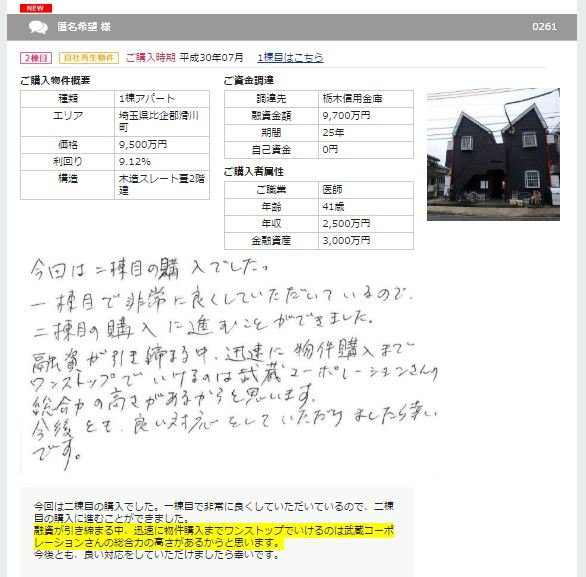 NEW
匿名希望 様 0261
2棟目 自社再生物件 ご購入時期 平成30年07月 1棟目はこちら
ご購入物件概要
種類 1棟アパート
エリア 埼玉県比企郡滑川
町
価格 9,500万円
利回り 9.12%
構造 木造スレート葺2階
建
ご資金調達
調達先 栃木信用金庫
融資金額 9,700万円
期間 25年
自己資金 0円
ご購入者属性
ご職業 医師
年齢 41歳
年収 2,500万円
金融資産 3,000万円
今回は二棟目の購入でした。
一棟目で非常に良くしていただいているので、
二棟目の購入に進むことができました。
融資が引き締まる中、迅速に物件購入まで
ワンストップでいけるのは武蔵コーポレーションさんの
総合力の高さがあるからと思います。
今後とも、良い対応をしていただけましたら幸い
です。
今回は二棟目の購入でした。一棟目で非常に良くしていただいているので、二棟
目の購入に進むことができました。
融資が引き締まる中、迅速に物件購入までワンストップでいけるのは武蔵コーポ
レーションさんの総合力の高さがあるからと思います。
今後とも、良い対応をしていただけましたら幸いです。